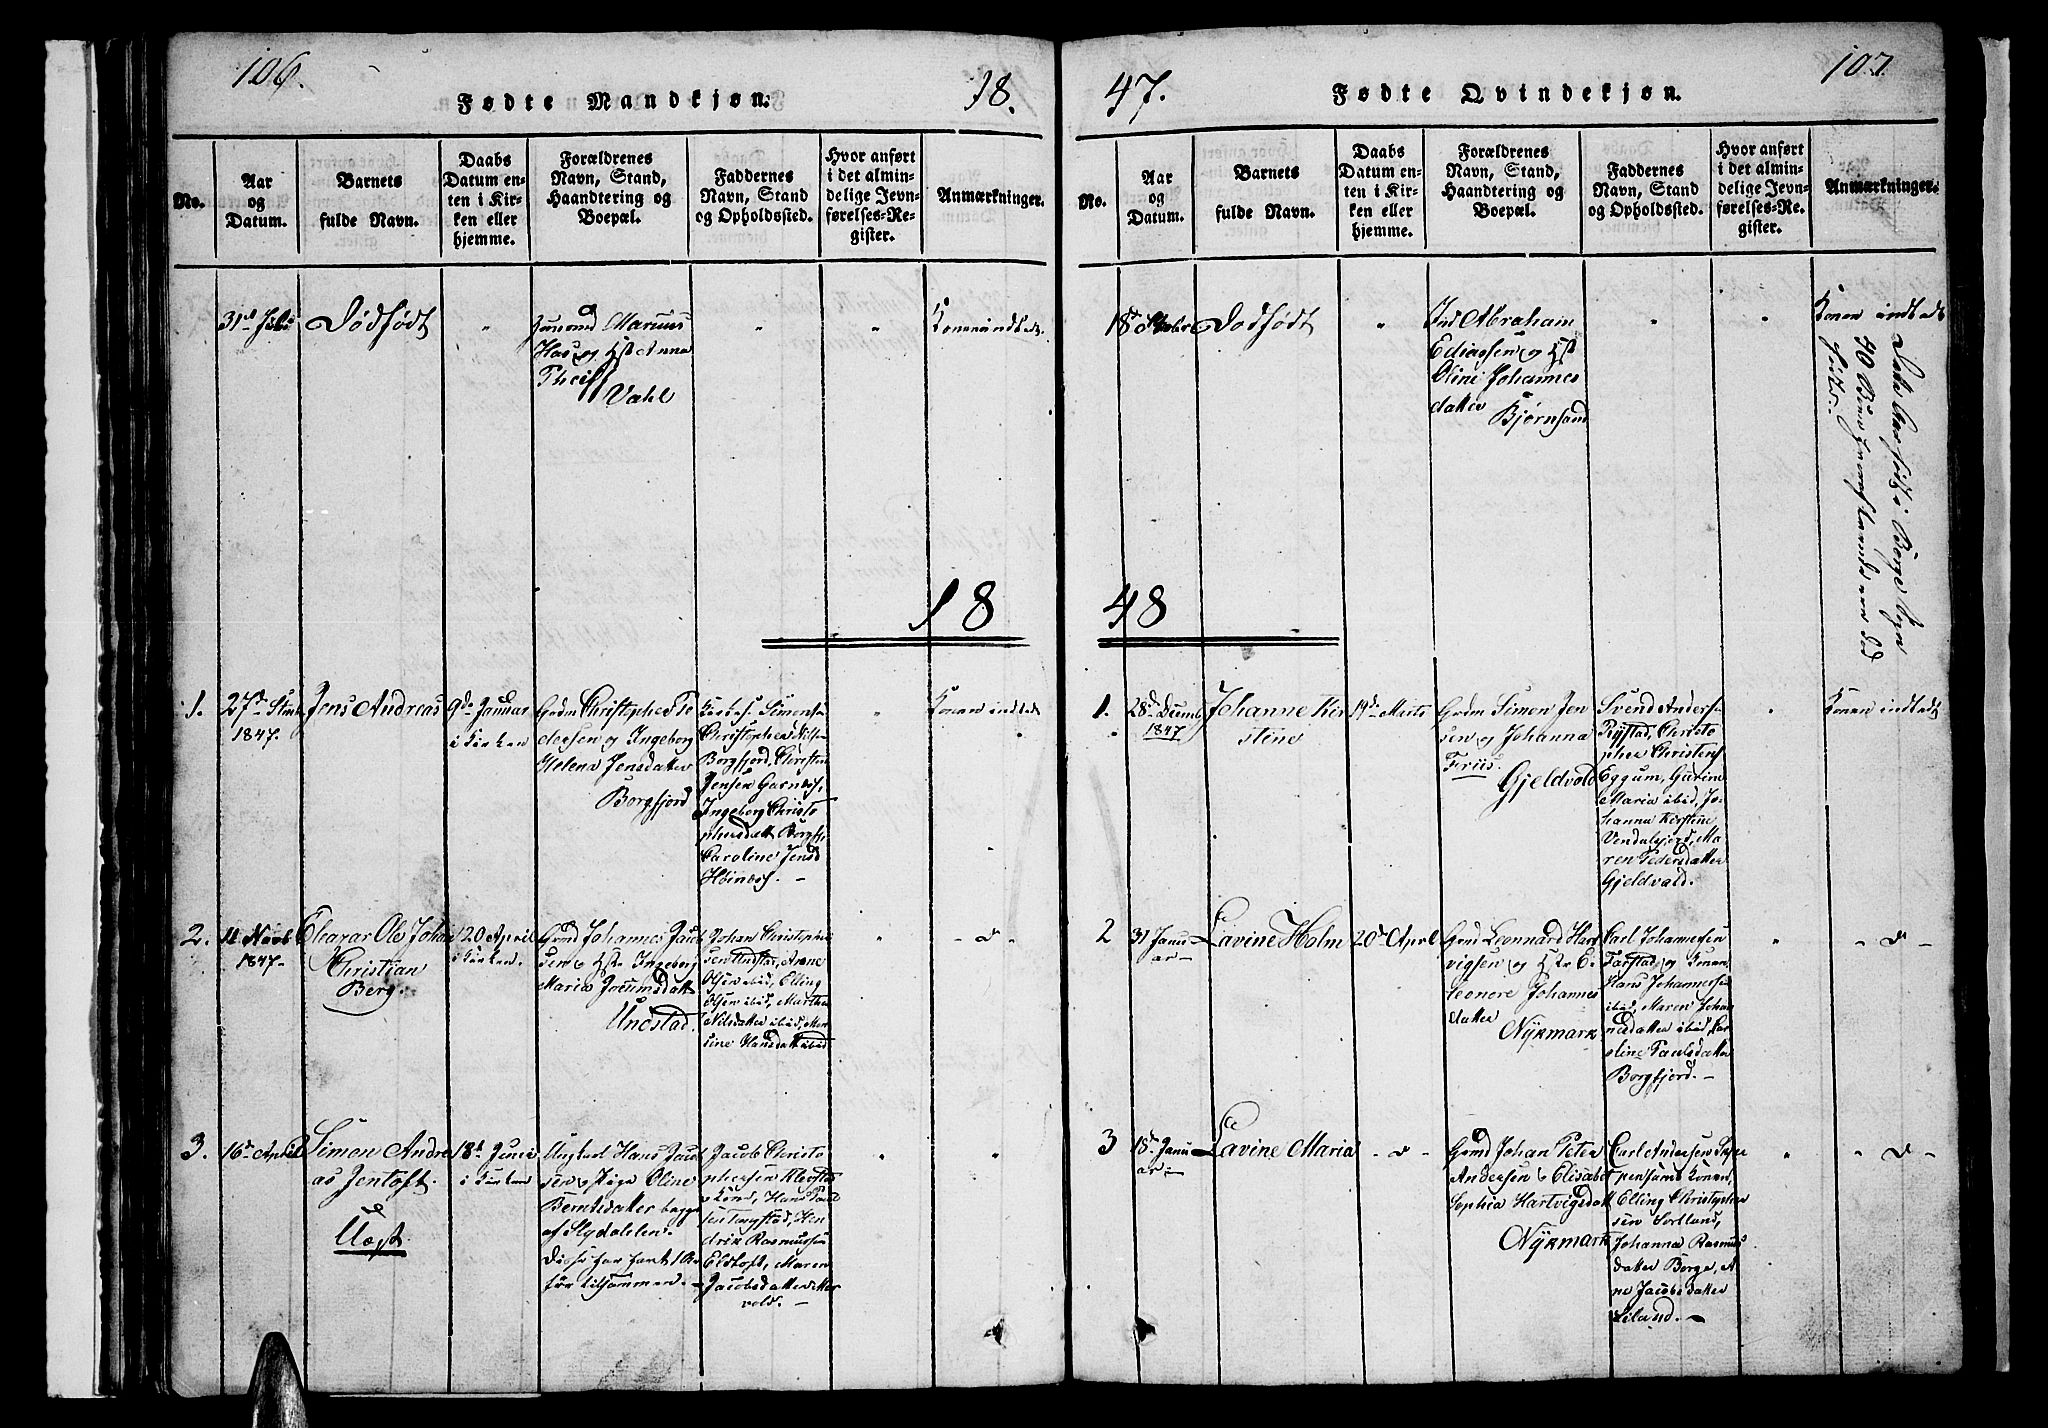 106.
Fødte Mandkjøn.
18.
No.
Aar
og
Datum.
Barnets
fulde Navn.
Daabs
Datum en-
ten i Kir-
ken eller
hjemme.
Forældrenes
Navn, Stand,
Haandtering og
Boepæl.
Faddernes
Navn, Stand
og Opholdssted.
Hvor anført
i det almin-
delige Jevn-
førelses-Re-
gister.
Anmærkninger.
31te Juli
Dødfødt
"
Marius
Has og Hst Anna
Theil
Vahl
"
"
Konen indledt.
18
1.
27de
1847.
Jens Andreas
9de Januar
i Kirken
Grdm Christopher Pe
dersen og Ingeborg
Helena Jensdatter
Borgfjord
Simons.
Christopher Nils.
Borgfjord, Christen
Jensen
Ingeborg Christo
phersdatt Borgfj.
Caroline Jensd
"
Konen indledt
2.
11 Novb
1847-
Eleazar Ole Johan
Christian
Berg.
20 April
i Kirken.
Grmd Johannes Jacob
sen og Hst. Ingeborg
Maria
Unestad.
Johan Christopher
sen Unstad, Anne
Olsen ibid, Elling
Olsen ibid, Marthe
Nilsdatter ibid,
sine Hansdatt ibid
"
- d -
3.
16de April
Simon Andre
as Jentoft.
Uægt.
18de Juni
i Kirken
Ungkarl Hans Jacob
sen og Pige Oline
Berntsdatter begge
af Slydalen.
Disse har havt 1 Bar
før tilsammen.
Jacob Christo
phersen
Kone, Hans
sen Hen
drik Rasmussen
Eltoft, Maren
Jacobsdatter Mær
vold. -
"
"
107
47.
Fødte Qvindekjøn.
No.
Aar
og
Datum.
Barnets
fulde Navn.
Daabs
Datum en-
ten i Kir-
ken eller
hjemme.
Forældrenes
Navn, Stand,
Haandtering og
Boepæl.
Faddernes
Navn, Stand
og Opholdssted.
Hvor anført
i det almin-
delige Jevn-
førelses-Re-
gister.
Anmærkninger.
18de
Dødfødt
"
Ind Abraham
Ediassen og Hst
Oline Johannes
datter
Bjørnsand
"
"
Konen indledt
48
1.
28de Decemb
1847
Johanne Kir
stine
19de Marts
Grdm Simon Jen
sen og Johanna
Friis.
Gjeldvold
Svend Anders.
Rystad, Christo
pher Christens
Eggum,
Maria ibid, Jo-
hanna Kirstine
Vendalsjord, Ma
ren Pedersdatter
Gjeldvald.
"
Konen indledt
2
31 Janu
ar -
Lavine Holm
20de April
Grmd Leonnard Hart
vigsen og Hstr E-
leonore Johannes
datter
Nykmark
Carl Johannesen
Farstad og Konen
Hans Johannesen
ibid, Maren Johan
nesdatter ibid, Ka
roline Paulsdatter
Borgfjord. -
"
" d -
3
18de Janu
ar -
Lavine Maria
- d -
Grmd Johan Peter
Andersen og Elisabet
Sophia Hartvigsdatt
Nykmark
Carl Andersen
Konen,
Elling Christopher
sen Sortland,
Johanna Rasmus
datter Borge, A
ne Jacobsdatter
Leiland. -
"
- d -